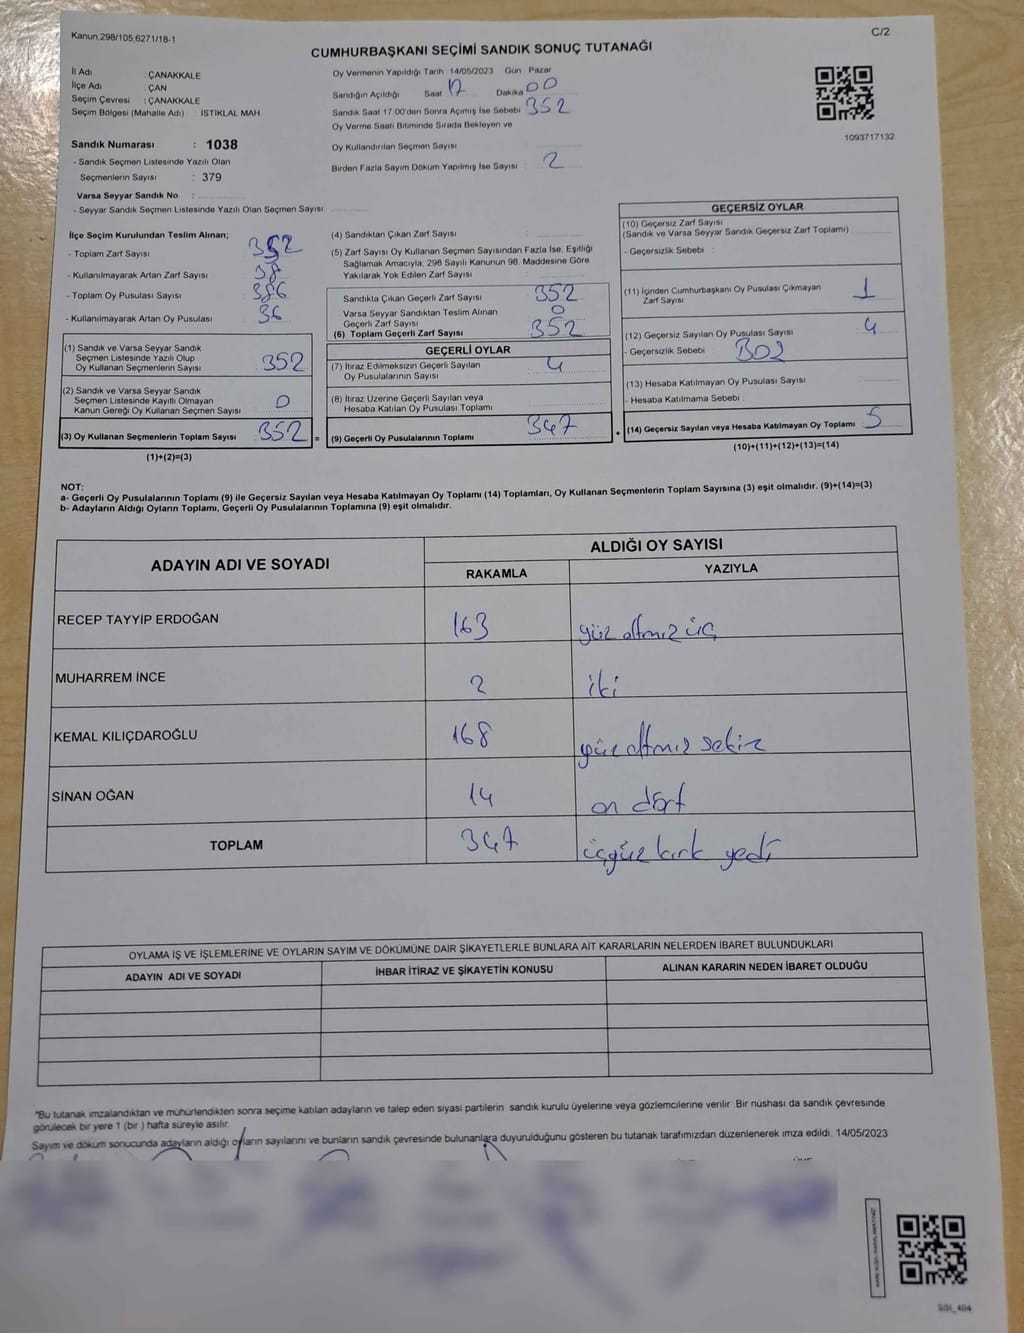 Kanun;298/105,6271/18-1
C/2
CUMHURBAŞKANI SEÇİMİ SANDIK SONUÇ TUTANAĞI
İl Adı : ÇANAKKALE
İlçe Adı : ÇAN
Seçim Çevresi : ÇANAKKALE
Seçim Bölgesi (Mahalle Adı) : İSTİKLAL MAH
Oy Vermenin Yapıldığı Tarih 14/05/2023 Gün : Pazar
Sandığın Açıldığı Saat 17 Dakika 00
Sandık Saat 17.00'den Sonra Açımış İse Sebebi 352
Oy Verme Saati Bitiminde Sırada Bekleyen ve
Oy Kullandırılan Seçmen Sayısı
Birden Fazla Sayım Döküm Yapılmış İse Sayısı : 2
1093717132
Sandık Numarası : 1038
- Sandık Seçmen Listesinde Yazılı Olan
Seçmenlerin Sayısı : 379
Varsa Seyyar Sandık No :
- Seyyar Sandık Seçmen Listesinde Yazılı Olan Seçmen Sayısı:
İlçe Seçim Kurulundan Teslim Alınan;
- Toplam Zarf Sayısı 352
- Kullanılmayarak Artan Zarf Sayısı : 38
- Toplam Oy Pusulası Sayısı : 386
- Kullanılmayarak Artan Oy Pusulası : 36
(1) Sandık ve Varsa Seyyar Sandık
Seçmen Listesinde Yazılı Olup
Oy Kullanan Seçmenlerin Sayısı : 352
(2) Sandık ve Varsa Seyyar Sandık
Seçmen Listesinde Kayıtlı Olmayan
Kanun Gereği Oy Kullanan Seçmen Sayısı 0
(3) Oy Kullanan Seçmenlerin Toplam Sayısı : 352 =
(1)+(2)=(3)
(4) Sandıktan Çıkan Zarf Sayısı :
(5) Zarf Sayısı Oy Kullanan Seçmen Sayısından Fazla İse, Eşitliği
Sağlamak Amacıyla, 298 Sayılı Kanunun 98. Maddesine Göre
Yakılarak Yok Edilen Zarf Sayısı :
Sandıkta Çıkan Geçerli Zarf Sayısı : 352
Varsa Seyyar Sandıktan Teslim Alınan
Geçerli Zarf Sayısı : 0
(6) Toplam Geçerli Zarf Sayısı : 352
GEÇERLİ OYLAR
(7) İtiraz Edilmeksizin Geçerli Sayılan
Oy Pusulalarının Sayısı : 4
(8) İtiraz Üzerine Geçerli Sayılan veya
Hesaba Katılan Oy Pusulası Toplamı :
(9) Geçerli Oy Pusulalarının Toplamı : 347 +
GEÇERSİZ OYLAR
(10) Geçersiz Zarf Sayısı
(Sandık ve Varsa Seyyar Sandık Geçersiz Zarf Toplamı) :
- Geçersizlik Sebebi :
(11) İçinden Cumhurbaşkanı Oy Pusulası Çıkmayan
Zarf Sayısı : 1
(12) Geçersiz Sayılan Oy Pusulası Sayısı : 4
- Geçersizlik Sebebi : B02
(13) Hesaba Katılmayan Oy Pusulası Sayısı :
- Hesaba Katılmama Sebebi :
(14) Geçersiz Sayılan veya Hesaba Katılmayan Oy Toplamı : 5
(10)+(11)+(12)+(13)=(14)
NOT:
a- Geçerli Oy Pusulalarının Toplamı (9) ile Geçersiz Sayılan veya Hesaba Katılmayan Oy Toplamı (14) Toplamları, Oy Kullanan Seçmenlerin Toplam Sayısına (3) eşit olmalıdır. (9)+(14)=(3)
b- Adayların Aldığı Oyların Toplamı, Geçerli Oy Pusulalarının Toplamına (9) eşit olmalıdır.
ADAYIN ADI VE SOYADI
ALDIĞI OY SAYISI
RAKAMLA YAZIYLA
RECEP TAYYİP ERDOĞAN 163 yüz altmız üç
MUHARREM İNCE 2 iki
KEMAL KILIÇDAROĞLU 168 yüz altmız sekiz
SİNAN OĞAN 14 on dört
TOPLAM 347 üçyüz kırk yedi
OYLAMA İŞ VE İŞLEMLERİNE VE OYLARIN SAYIM VE DÖKÜMÜNE DAİR ŞİKAYETLERLE BUNLARA AİT KARARLARIN NELERDEN İBARET BULUNDUKLARI
ADAYIN ADI VE SOYADI İHBAR İTİRAZ VE ŞİKAYETİN KONUSU ALINAN KARARIN NEDEN İBARET OLDUĞU
"Bu tutanak imzalandıktan ve mühürlendikten sonra seçime katılan adayların ve talep eden siyasi partilerin sandık kurulu üyelerine veya gözlemcilerine verilir. Bir nüshası da sandık çevresinde
görülecek bir yere 1 (bir ) hafta süreyle asılır.
Sayım ve döküm sonucunda adayların aldığı oyların sayılarını ve bunların sandık çevresinde bulunanlara duyurulduğunu gösteren bu tutanak tarafımızdan düzenlenerek imza edildi. 14/05/2023
SSI_404